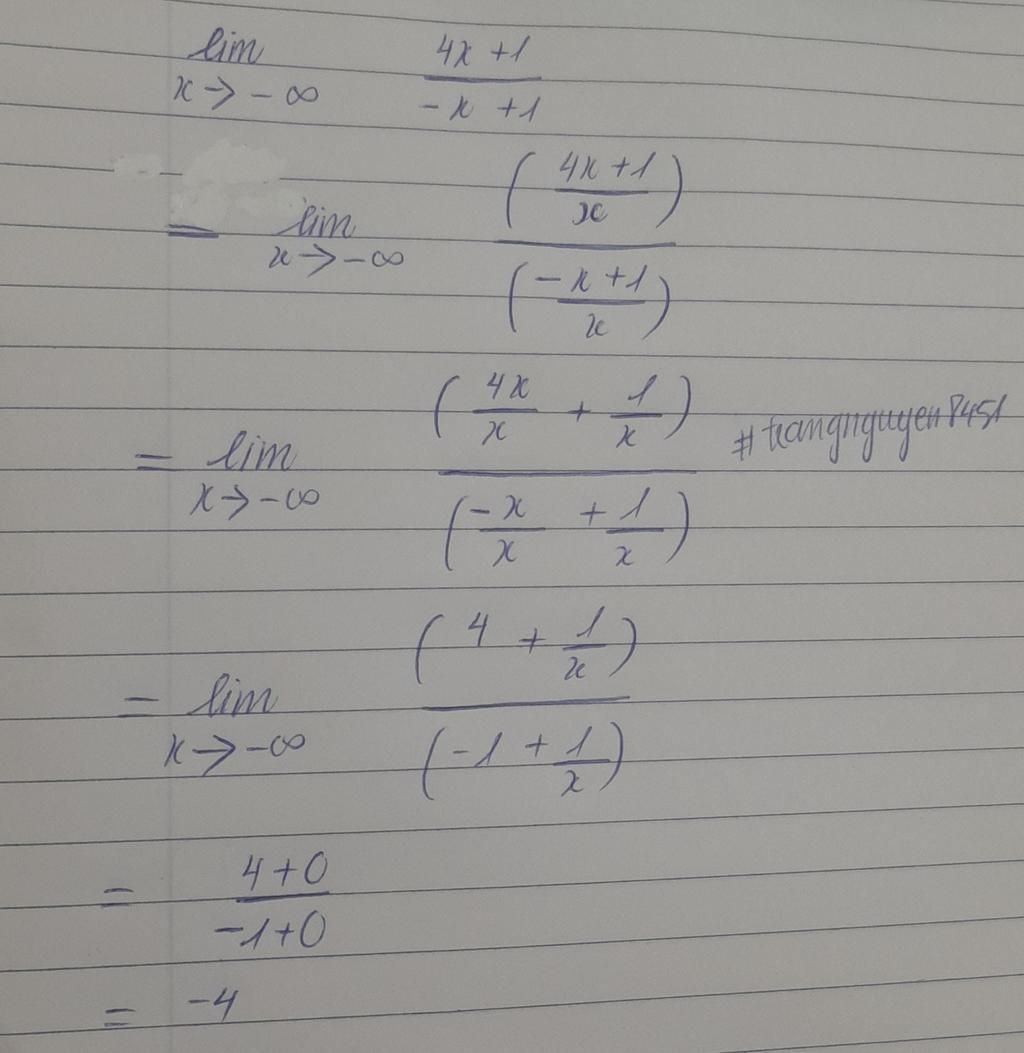 lim x→-∞ (4x+1)/(-x+1)
= lim x→-∞ ((4x+1)/x)/((-x+1)/x)
= lim x→-∞ (4x/x + 1/x)/(-x/x + 1/x) #trangnguyen8451
= lim x→-∞ (4 + 1/x)/(-1 + 1/x)
= (4+0)/(-1+0)
= -4